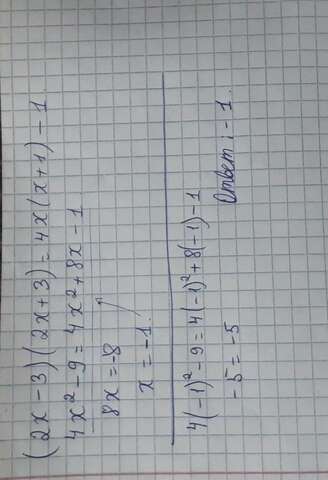 (2x-3)(2x+3)=4x(x+1)-1
4x²-9=4x²+8x-1
8x=-8
x=-1.
4(-1)²-9=4(-1)²+8(-1)-1
-5=-5
Ответ: -1.